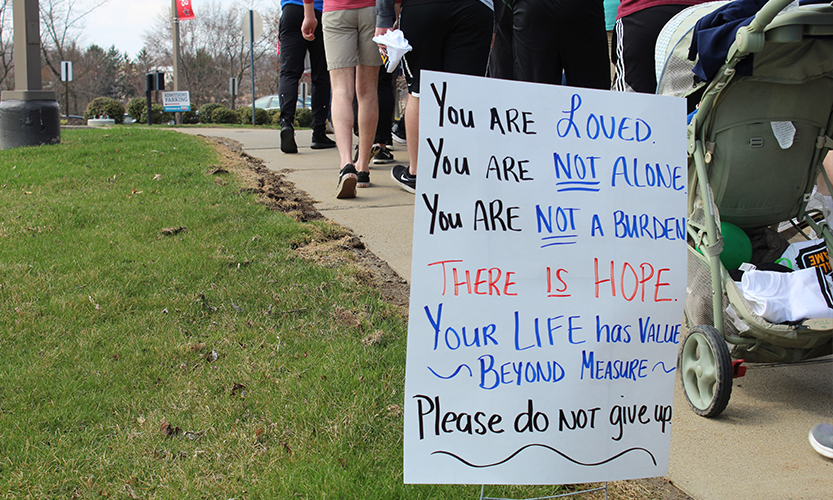 You are Loved.
You are NOT ALONE.
You ARE NOT A BURDEN
THERE IS HOPE.
YOUR LIFE has VALUE
~ BEYOND MEASURE ~
Please do NOT give up.
PARKING